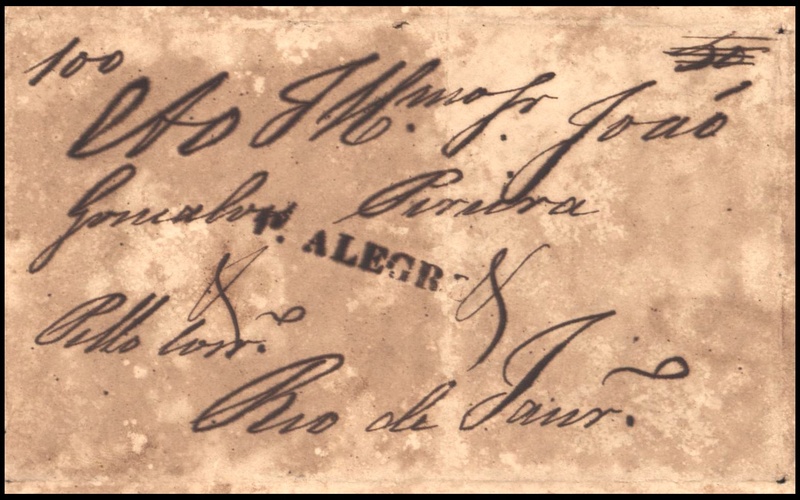 100
Ao Illmo Sr. João
Gonsalves Pereira
P. ALEGR
Pello Corr.
Rio de Janr.